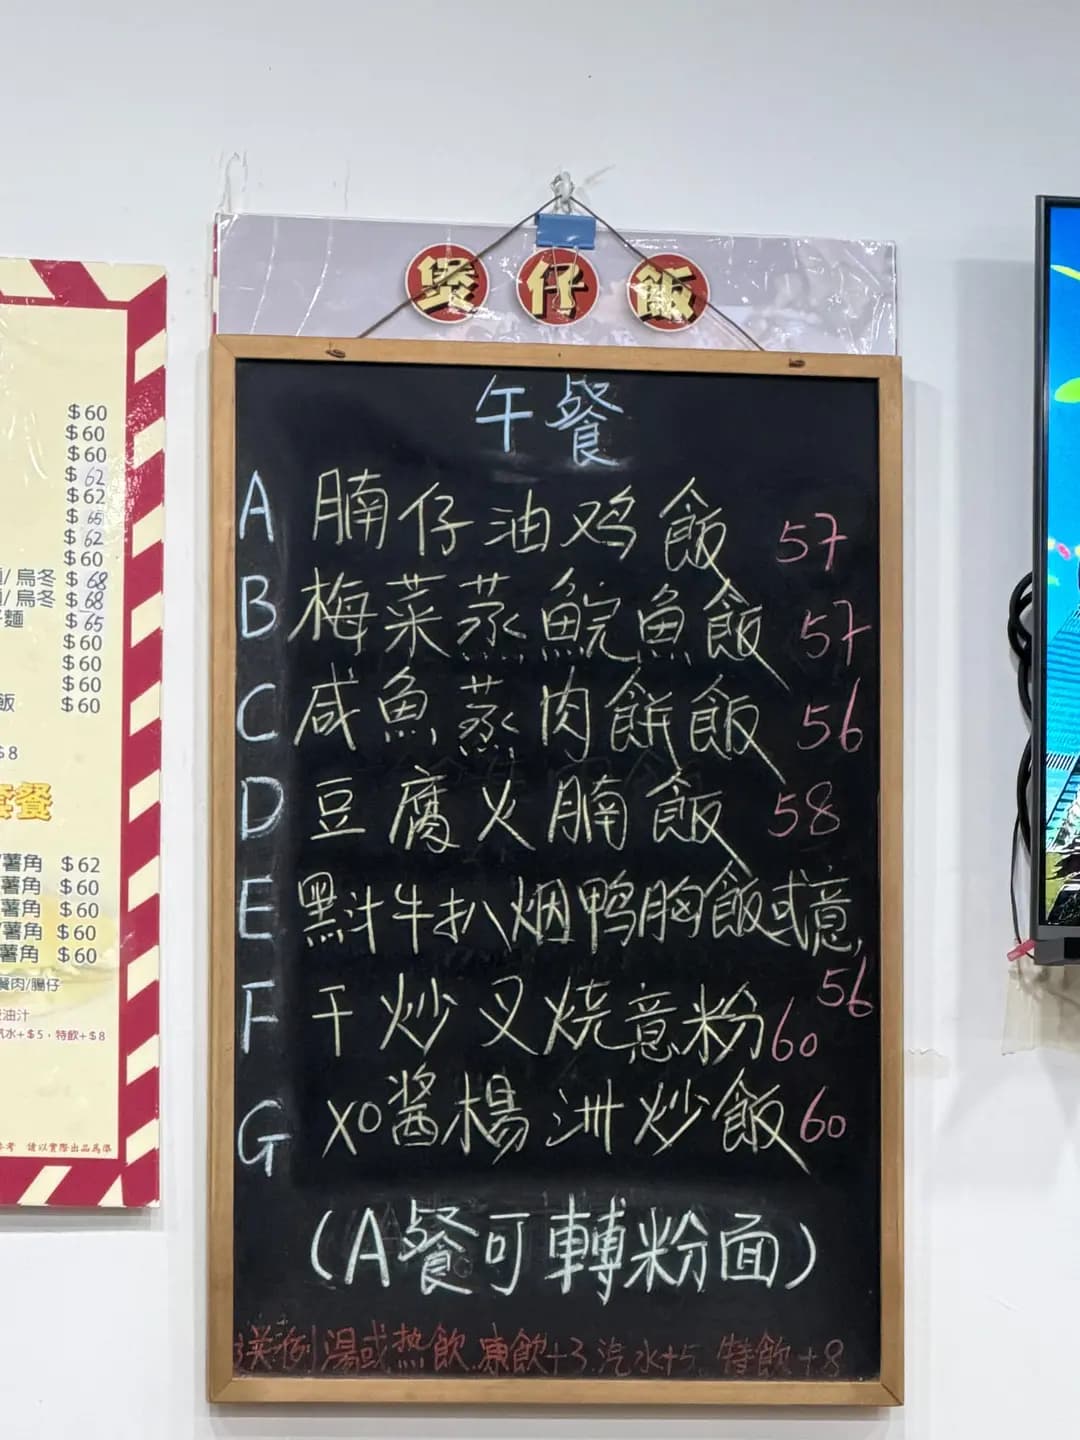 煲仔飯
午餐
A 腩仔油鸡飯 57
B 梅菜蒸鯇魚飯 57
C 咸魚蒸肉餅飯 56
D 豆腐火腩飯 58
E 黑汁牛扒烟鸭胸飯或意, 56
F 干炒叉烧意粉 60
G XO酱楊洲炒飯 60
(A餐可轉粉面)
送例湯或热飲.凍飲+3.汽水+5.特飲+8
$60
$60
$60
$62
$62
$65
$62
$60
/烏冬 $68
/烏冬 $68
麵 $65
$60
$60
$60
飯 $60
$8
套餐
薯角 $62
薯角 $60
薯角 $60
薯角 $60
薯角 $60
餐肉/腸仔
油汁
汽水+$5，特飲+$8
參考 請以實際出品為準